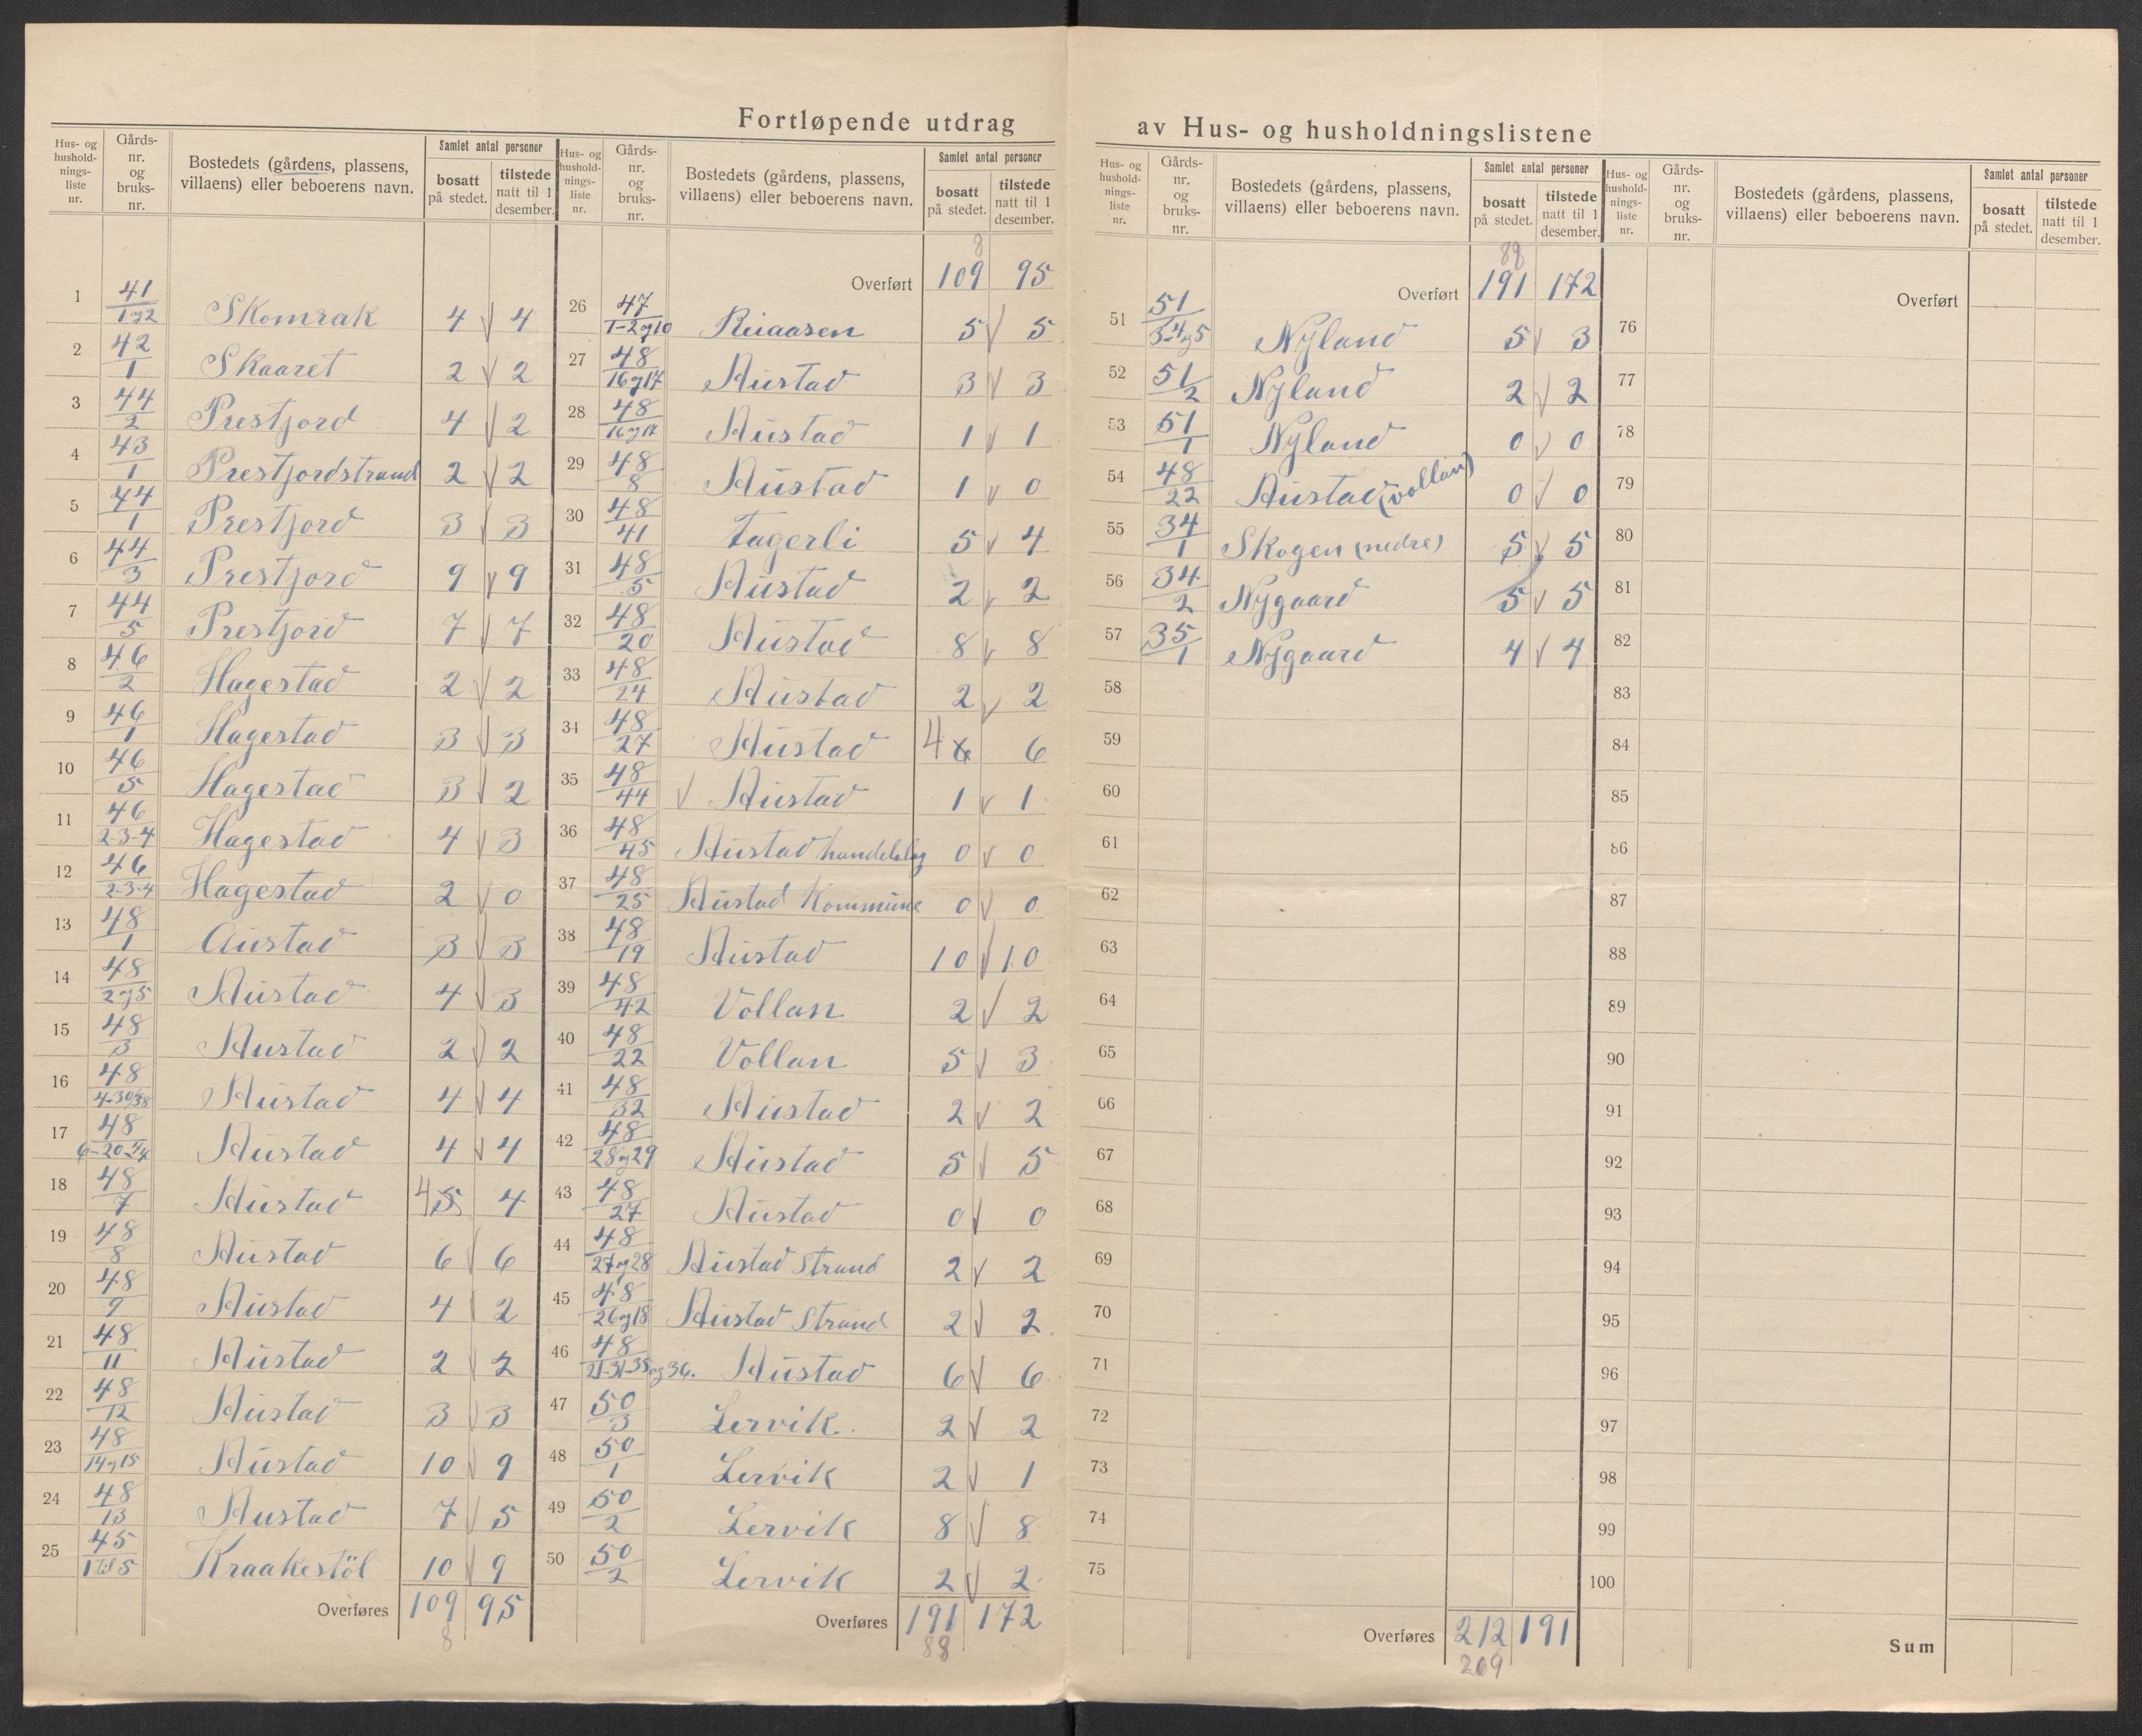 Fortløpende utdrag av Hus- og husholdningslistene
Hus- og hushold- nings- liste nr. | Gårds- nr. og bruks- nr. | Bostedets (gårdens, plassens, villaens) eller beboerens navn. | Samlet antal personer | bosatt på stedet. | tilstede natt til 1 desember.
1 41/1og2 Skomrak 4 √ 4
2 42/1 Skaaret 2 √ 2
3 44/2 Prestjord 4 √ 2
4 43/1 Prestjordstrand 2 √ 2
5 44/1 Prestjord 3 √ 3
6 44/3 Prestjord 9 √ 9
7 44/5 Prestjord 7 √ 7
8 46/2 Hagestad 2 √ 2
9 46/1 Hagestad 3 √ 3
10 46/5 Hagestad 3 √ 2
11 46/2-3-4 Hagestad 4 √ 3
12 46/2-3-4 Hagestad 2 √ 0
13 48/1 Austad 3 √ 3
14 48/2og5 Austad 4 √ 3
15 48/3 Austad 2 √ 2
16 48 Austad 4 √ 4
17 48 Austad 4 √ 4
18 48/7 Austad 4 5 4
19 48/8 Austad 6 √ 6
20 48/9 Austad 4 √ 2
21 48/11 Austad 2 √ 2
22 48/12 Austad 3 √ 3
23 48/14og15 Austad 10 √ 9
24 48/13 Austad 7 √ 5
25 45/1til5 Kraakestöl 10 √ 9
Overføres 109 95
8
Hus- og hushold- nings- liste nr. | Gårds- nr. og bruks- nr. | Bostedets (gårdens, plassens, villaens) eller beboerens navn. | Samlet antal personer | bosatt på stedet. | tilstede natt til 1 desember.
8
Overført 109 95
26 47/1-2og10 5 √ 5
27 48/16og17 Austad 3 √ 3
28 48/16og17 Austad 1 √ 1
29 48/8 Austad 1 √ 0
30 48/41 Fagerli 5 √ 4
31 48/5 Austad 2 √ 2
32 48/20 Austad 8 √ 8
33 48/24 Austad 2 √ 2
34 48/27 Austad 4 6 6
35 48/44 √ Austad 1 √ 1
36 48/45 Austad handelslag 0 √ 0
37 48/25 Austad Kommune 0 √ 0
38 48/19 Austad 10 √ 10
39 48/42 Vollan 2 √ 2
40 48/22 Vollan 5 √ 3
41 48/32 Austad 2 √ 2
42 48/28og29 Austad 5 √ 5
43 48/27 Austad 0 √ 0
44 48/27og28 Austad Strand 2 √ 2
45 48/26og18 Austad Strand 2 √ 2
46 48/21-31-35og36. Austad 6 √ 6
47 50/3 Lervik. 2 √ 2
48 50/1 Lervik 2 √ 1
49 50/2 Lervik 8 √ 8
50 50/2 Lervik 2 √ 2
Overføres 191 172
88
Hus- og hushold- nings- liste nr. | Gårds- nr. og bruks- nr. | Bostedets (gårdens, plassens, villaens) eller beboerens navn. | Samlet antal personer | bosatt på stedet. | tilstede natt til 1 desember.
88
Overført 191 172
51 51/3-4og5 Nyland 5 √ 3
52 51/2 Nyland 2 √ 2
53 51/1 Nyland 0 √ 0
54 48/22 Austad (vollan) 0 √ 0
55 34/1 Skogen (nedre) 5 √ 5
56 34/2 Nygaard 5 √ 5
57 35/1 Nygaard 4 √ 4
58
59
60
61
62
63
64
65
66
67
68
69
70
71
72
73
74
75
Overføres 212 191
209
Hus- og hushold- nings- liste nr. | Gårds- nr. og bruks- nr. | Bostedets (gårdens, plassens, villaens) eller beboerens navn. | Samlet antal personer | bosatt på stedet. | tilstede natt til 1 desember.
Overført
76
77
78
79
80
81
82
83
84
85
86
87
88
89
90
91
92
93
94
95
96
97
98
99
100
Sum